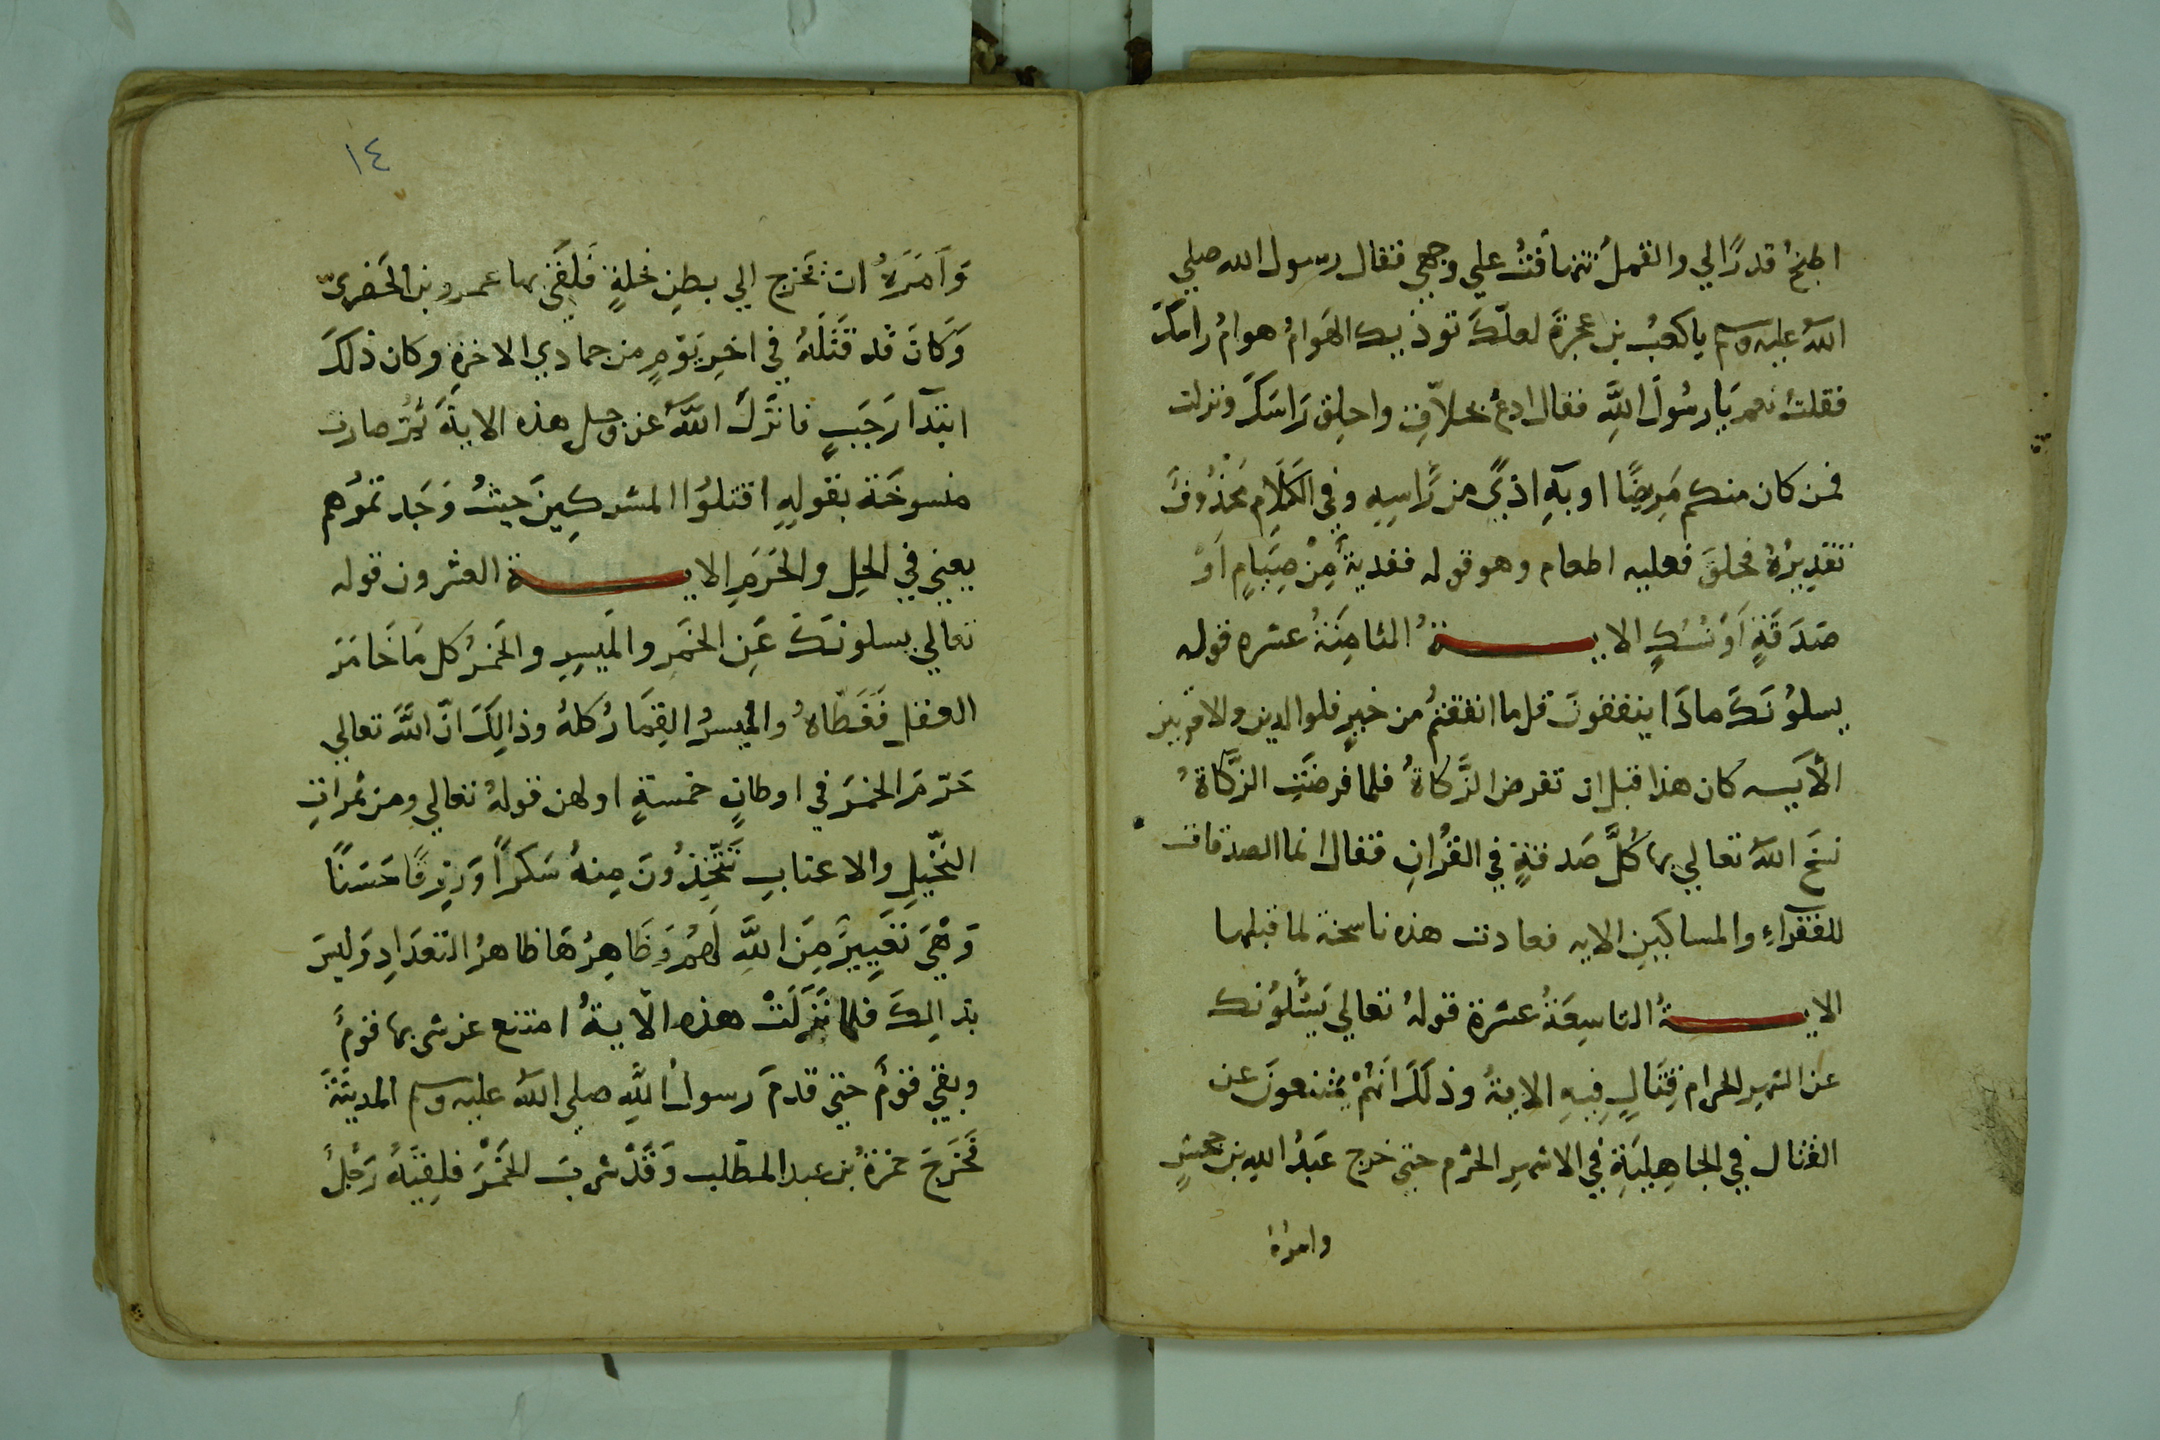 اطبخ قدرًا لي والقملُ تتهافتُ علي وجهي فقال رسول الله صلي
اللهُ عليه وسلم ياكعبُ بن عجرةَ لعلّكَ توذيك الهَوامُ هوامُ راسكَ
فقلتُ نعم يَا رسُولَ اللَّهِ فقال ادعُ بحلاّقٍ واحلِق رَاسَكَ ونزلت
فمن كان منكم مَرِيضًا او بهِ اذيً من رَّاسِهِ وفي الكَلَامِ مَحْذُوفٌ
تقدِيرُهُ فحلقَ فعليه اطعام وهو قوله ففديةٌ مِنْ صِيَامٍ اَوْ
صَدَقَةٍ اَوْ نُسُكٍ الايـــــةُ الثامِنَةُ عشره قوله
يسلوُنَكَ ماذَا ينفقونَ قل ما انفقتُم من خيرٍ فلوالدين والاقربين
الأيَه كان هذا قبل ان تفرض الزَّكاةُ فلما فرضَتِ الزَّكاةُ
نسخَ اللهُ تعالي بها كُلَّ صَدقةٍ في القُرانِ فقال انما الصدقات
للفقرآءِ والمساكينِ الايه فعادت هذه ناسخة لما قبلها
الايـــــةُ التاسِعَةُ عشرة قولهُ تعالي يَسْئَلوُنك
عن الشهرِ الحرام قِتَالٍ فِيهِ الايةُ وذلكَ انَّهُمْ يمْتنعونَ عن
القتال في الجاهِليَةِ في الاشهرِ الحُرُم حتي خرج عَبْدُ اللهِ بن جحشٍ
وامرهُ
١٤
وَاَمَرَهُ ان تخرج الي بطنِ نخلةٍ فَلَقيَ بها عمرو بن الحَضْرميّ
وَكَانَ قد قَتَلَهُ في اخرِ يَوْمٍ من جمادي الاخرةِ وكان ذلكَ
ابتدآ رَجَبٍ فانزَلَ اللَّهُ عز وجل هذه الايةَ ثُمَّ صارت
منسوخَة بقولِهِ اقتلوُا المشركِينَ حيثُ وَجَدتموُهم
يعني في الحِلِ والحَرَمِ الايـــــة العشرون قوله
تعالي يسلونكَ عَنِ الخمَرِ والمَيسِرِ والخمرُ كل مَا خَامَرَ
العقل فَغَطّاهُ والميسرُ القِمَارُ كلهُ وذالِكَ انّ اللَّهَ تعالي
حَرّمَ الخمرَ في اوطانٍ خمسةٍ اولهن قولهُ تعالي ومن ثمراتِ
النّخِيلِ والاعنابِ تَتّخِذُونَ مِنهُ سَكراً وَرِزقًا حَسَنًا
وَهْيَ تَغْيِيرٌ مِنَ اللَّهِ لَهُم وَظَاهِرُهَا ظاهرُ التعدَادِ وَليسَ
بذالِكَ فلما نَزَلَتْ هذه الآيةُ امتنع عن شربها قومٌ
وبقي قومٌ حتي قدمَ رسولُ اللَّهِ صلي اللهُ عليه وسلم المدينَةَ
فَخَرَجَ حمزةُ بن عبد المطّلب وَقَدْ شربَ الخَمْرَ فلقيَهُ رَجُلٌ